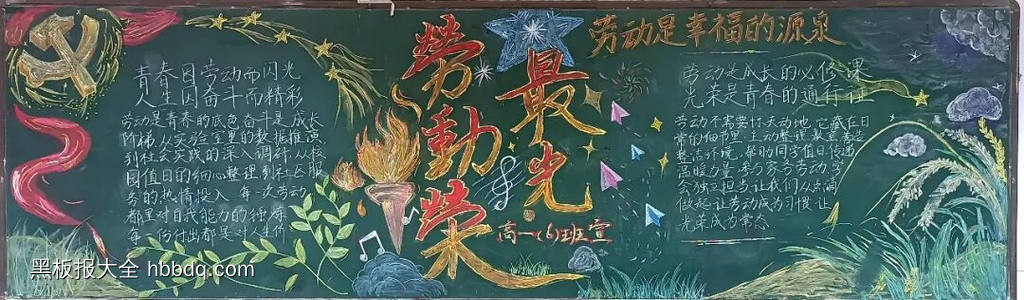 青春因劳动而闪光
人生因奋斗而精彩
劳动是青春的底色奋斗是成长
阶梯从实验室里的数据推演
到社会实践的深入调研从校
园值日的细心整理到社区服
务的热情投入每一次劳动
都里对自我能力的锤炼
每一份付出都是对人生价
勞動
最光
榮
高一(6)班宣
劳动是幸福的源泉
劳动是成长的必修课
光荣是青春的通行证
劳动不需要惊天动地它藏在日
常的细节里主动整理
整洁环境帮助同学值日传递
温暖力量参与家务劳动学
会独立担当让我们从点滴
做起让劳动成为习惯让
光荣成为常态
黑板报大全 hbbdq.com